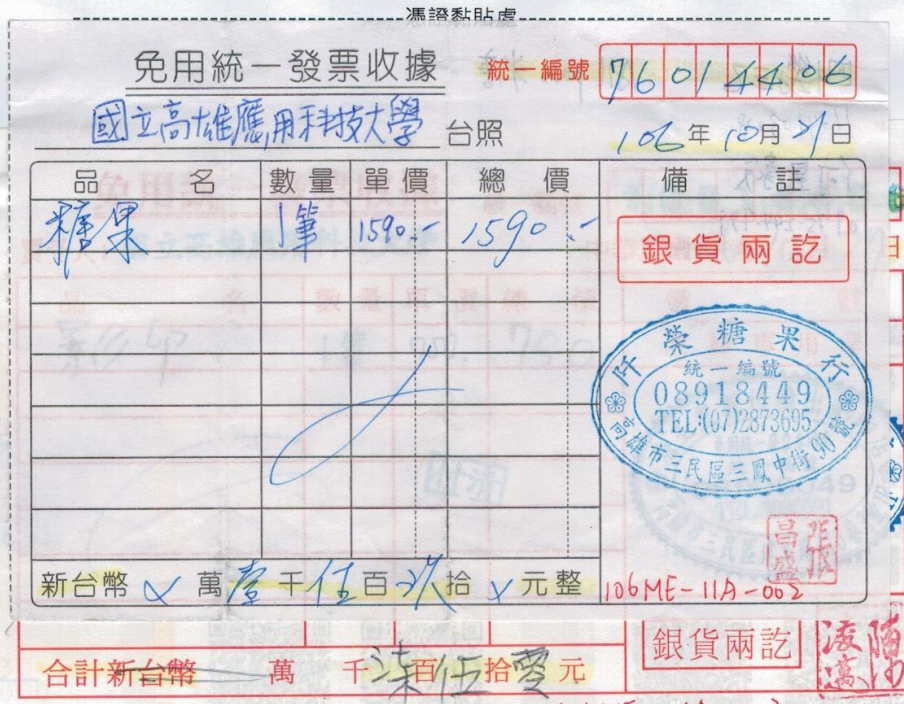 憑證黏貼處
免用統一發票收據
統一編號 76014406
國立高雄應用科技大學 台照
106年10月21日
品名 數量 單價 總價 備註
糖果 1筆 1590.- 1590.-
銀貨兩訖
阡榮糖果行
統一編號
08918449
TEL:(07)2873695
高雄市三民區三鳳中街90號
張昌盛
新台幣 X 萬 壹 千 伍 百 玖 拾 X 元整
106ME-11A-002
銀貨兩訖
合計新台幣 萬 千 柒 百 伍 拾 零 元